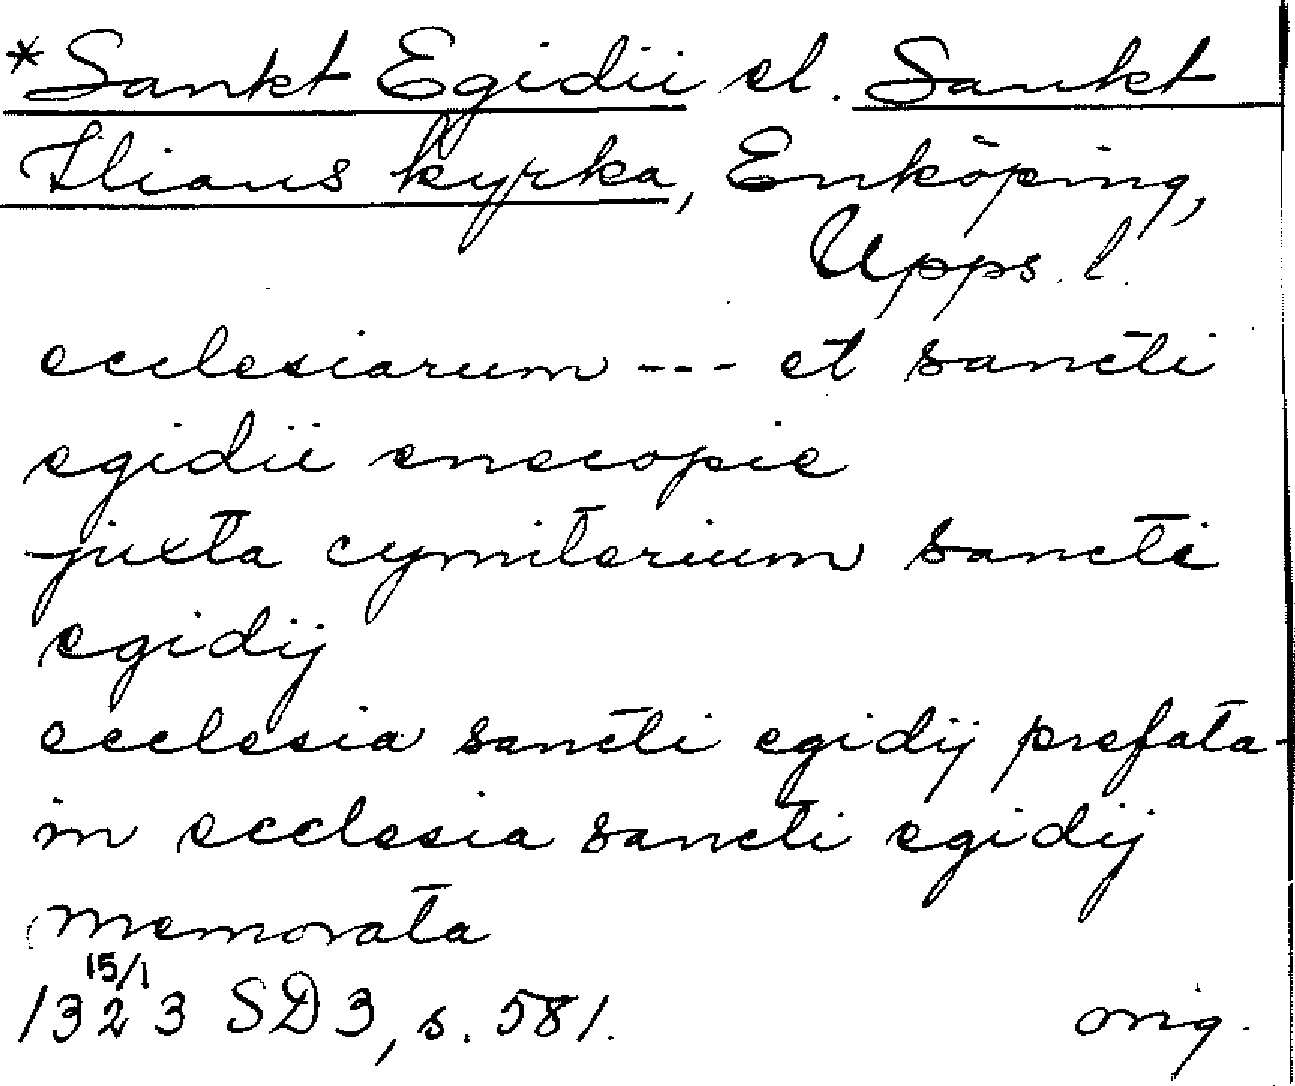 *Sankt Egidii el. Sankt
Ilians kyrka, Enköping,
Upps. l.
ecclesiarum --- et sancti
egidii enecopie
juxta cymiterium sancti
egidij
ecclesia sancti egidij prefata-
in ecclesia sancti egidij
memorata
15/1
1323 SD 3, s. 581. orig.